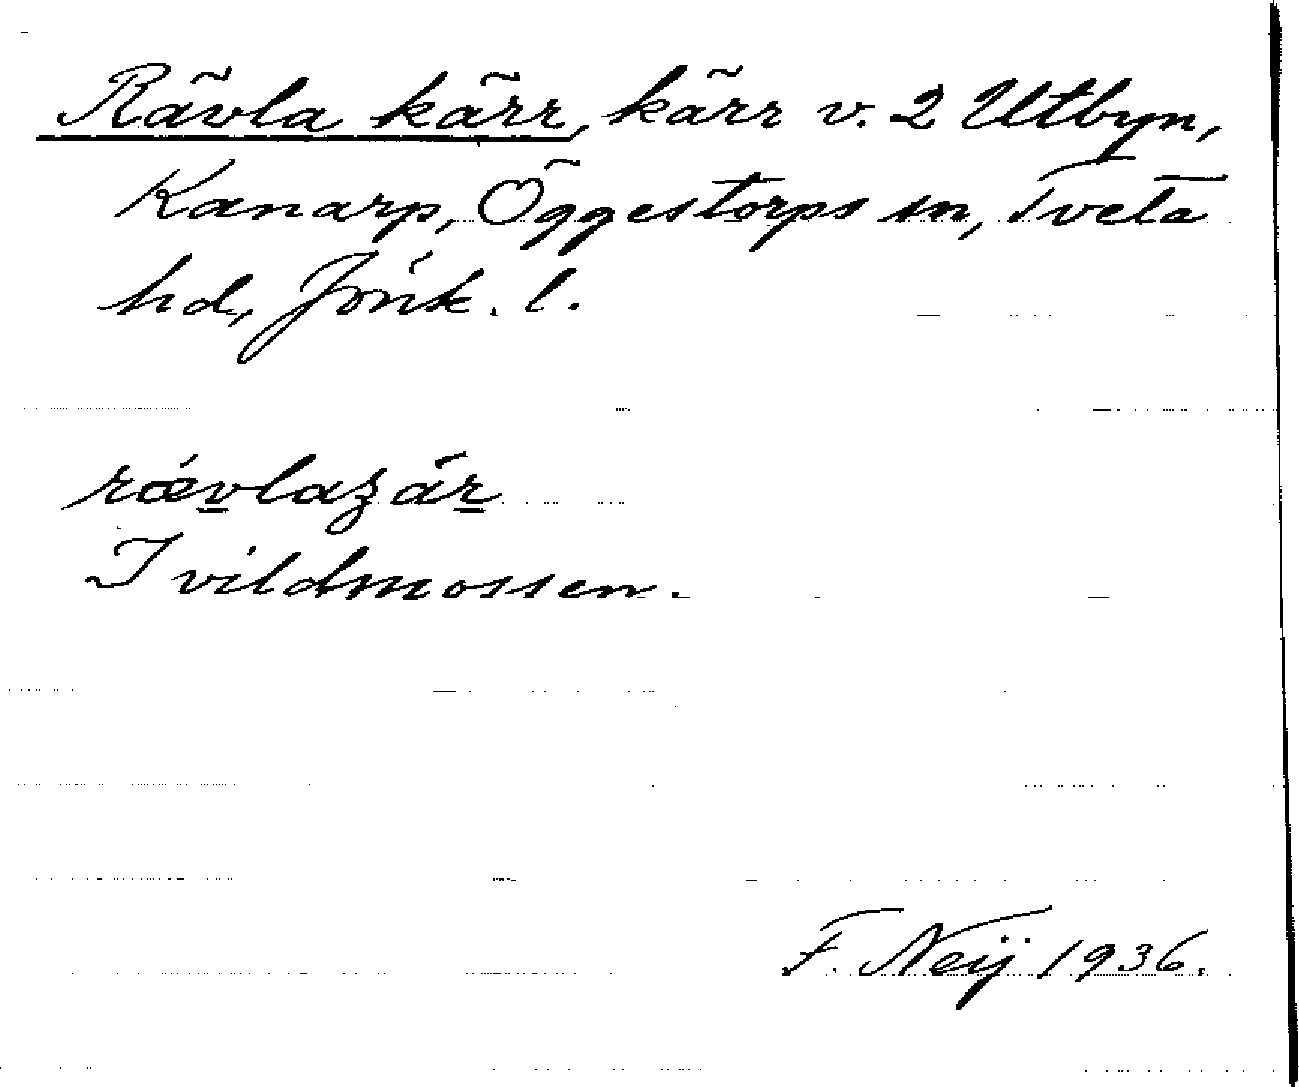 Rävla kärr, kärr v. 2 Utbyn,
Kanarp, Öggestorps sn, Tveta
hd, Jönk. l.
I vildmossen.
F. Neij 1936.